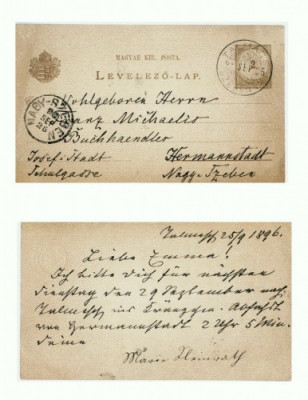 MAGYAR KIR. POSTA.
LEVELEZŐ-LAP.
Wohlgeboren Herrn
Franz Michaelis
Buchhaendler
Josef-Stadt
Schulgasse
Hermannstadt
Nagy-Szeben
NAGY-SZEBEN
Talmesch 25/9 1896.
Liebe Emma!
Ich bitte Dich für nächsten
Dienstag den 29 September nach
Talmesch ins Kränzchen. Abfahrt
von Hermannstadt 2 Uhr 5 Min.
Deine
Marie